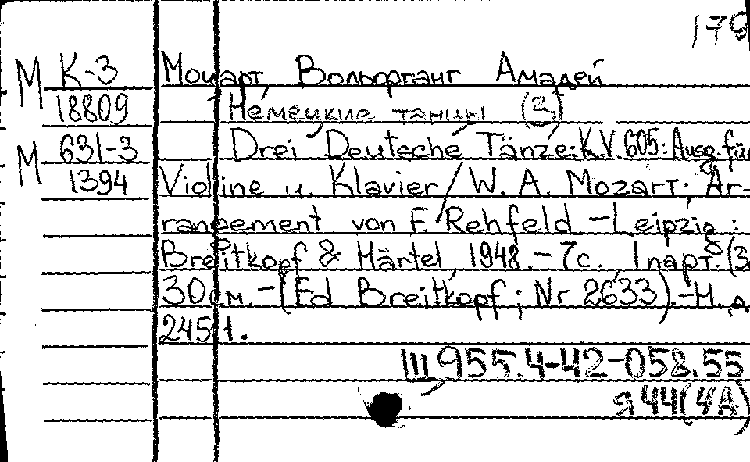 179
М К-3 Моцарт, Вольфганг Амадей
18809 Немецкие танцы (3)
М 631-3 Drei Deutsche Tänze: K.V. 605: Ausg. für
1394 Violine u. Klavier / W. A. Mozart; Ar-
rangement von F. Rehfeld - Leipzig:
Breitkopf & Härtel, 1948. - 7 с., 1 парт. (3
30 см. - (Ed Breitkopf; Nr 2633) - Н. д.
2451.
Ш 955.4-42-058.55
я 44(4А)